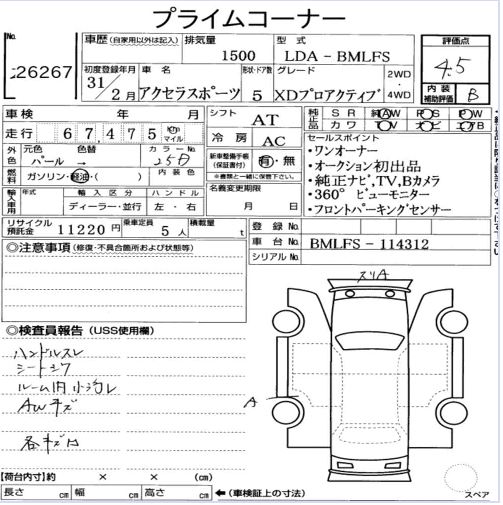 プライムコーナー
No. 26267
車歴 (自家用以外は記入) 排気量 1500 型式 LDA-BMLFS 評価点 4.5
初度登録年月 31 / 2月 車名 アクセラスポーツ 形状・ドア数 5 グレード XDプロアクティブ 2WD・4WD 内装補助評価 B
車検 年 月 シフト AT 純正品 SR 純AW PS PW
走行 67,475 km マイル 冷房 AC カワ TV ナビ エアB
外色 元色 パール → 色替 カラーNo. 25D
燃料 ガソリン・軽油・( ) 内装色
新車整備手帳(保証書付) 有・無
※書類と一緒に保管下さい。
輸入車用 年式 輸入区分 ディーラー・並行 ハンドル 左・右
名義変更期限 月 日
セールスポイント
・ワンオーナー
・オークション初出品
・純正ナビ,TV,Bカメラ
・360° ビューモニター
・フロントパーキングセンサー
リサイクル預託金 11220円 乗車定員 5人 積載量 t
登録No.
車台No. BMLFS-114312
シリアルNo.
◎注意事項 (修復・不具合箇所および状態等)
◎検査員報告 (USS使用欄)
ハンドルスレ
シートシワ
ルーム内小汚レ
AWキズ
各キズ凹
スリA
A
【荷台内寸】約 × × (cm)
長さ cm 幅 cm 高さ cm ←(車検証上の寸法)
スペア